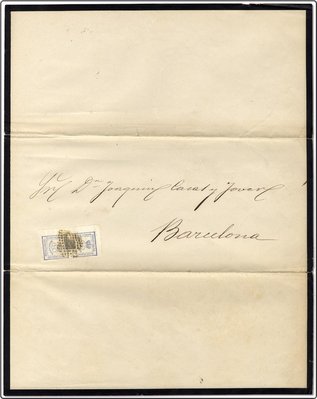 Sr Dn Joaquin Casas y Jover
Barcelona